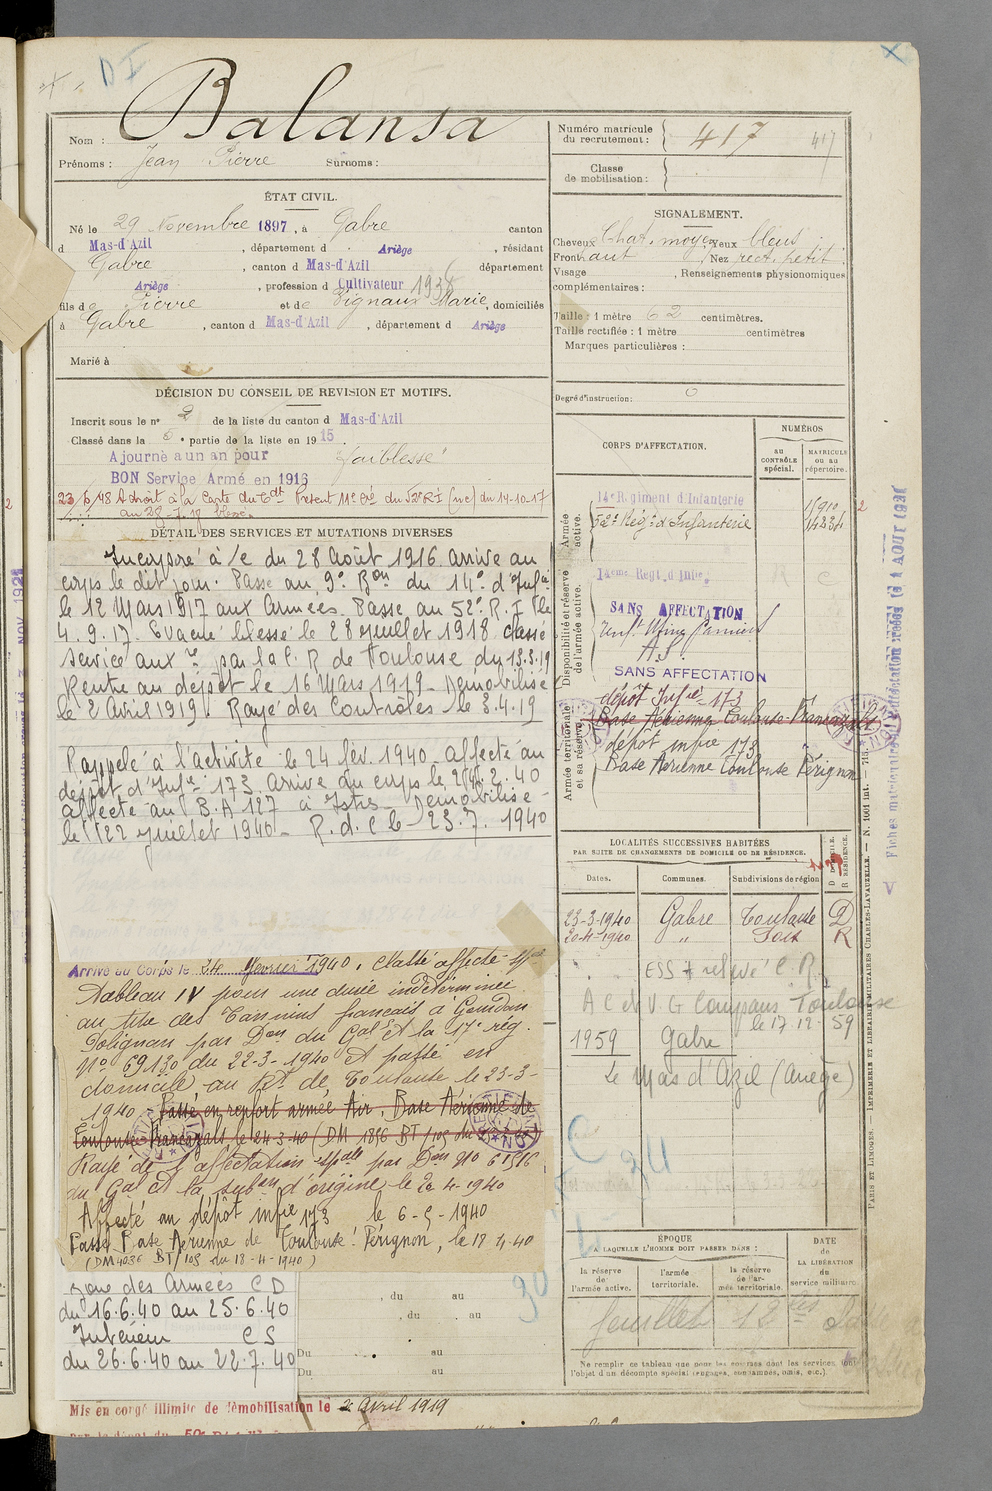 D I
Balansa
Nom :
Prénoms : Jean Pierre Surnoms :
Numéro matricule du recrutement : 417 417
Classe de mobilisation :
ÉTAT CIVIL.
Né le 29 Novembre 1897, à Gabre canton
d Mas-d'Azil, département d Ariège, résidant
Gabre, canton d Mas-d'Azil département
Ariège, profession d Cultivateur
fils de Pierre et de Vignaux Marie, domiciliés
à Gabre, canton d Mas-d'Azil, département d Ariège
Marié à
SIGNALEMENT.
Cheveux Chat. moyen Yeux bleus
Front haut Nez rect. petit
Visage , Renseignements physionomiques
complémentaires :
Taille : 1 mètre 62 centimètres.
Taille rectifiée : 1 mètre centimètres
Marques particulières :
Degré d'instruction : 0
DÉCISION DU CONSEIL DE REVISION ET MOTIFS.
Inscrit sous le n° 2 de la liste du canton d Mas-d'Azil
Classé dans la 5e partie de la liste en 1915.
Ajourné à un an pour "faiblesse"
BON Service Armé en 1916
23/6/48 A droit à la Carte du Ctt Présent 11e Cie du 52e RI (uc) du 14-10-17
au 28-7-18 blessé.
DÉTAIL DES SERVICES ET MUTATIONS DIVERSES
Incorporé à /c du 28 Août 1916 arrivé au
corps le dit jour. Passé au 9e Bon du 14e d'Infie
le 12 Mars 1917 aux Armées. Passé au 52e R.I le
4.9.17. Evacué blessé le 28 juillet 1918 classé
service aux re par la C. R de Toulouse du 13.3.19
Rentré au dépôt le 16 Mars 1919 - Démobilisé
le 2 Avril 1919. Rayé des Contrôles le 3.4.19
Rappelé à l'activité le 24 fév. 1940. affecté au
dépôt d'Infie 173. Arrivé au corps le 24.2.40
affecté au B.A 127 à Istres - Démobilisé
le 22 juillet 1940 - R.d.C le 23.7.1940
Arrivé au Corps le 24 février 1940, Classé affecté spal
tableau IV pour une durée indéterminée
au titre des Tanins français à Gourdan
Polignan par Don du Gal Ct la 17e rég.
No 69130 du 22-3-1940 et passé en
domicile au Rt de Toulouse le 23-3-
1940. Passé en renfort armée Air. Base Aérienne de
Toulouse Francazals le 24-3-40 (DM 1896 BT/105 du
Rayé de l'affectation spale par Don No 61516
du Gal Ct la subon d'origine le 20 4-1940
Affecté au dépôt infie 173 le 6-5-1940
Passé Base Aérienne de Toulouse Pérignon, le 18 4.40
(DM 4036 BT/105 du 18-4-1940)
zone des Armées C D
du 16.6.40 au 25.6.40
Intérieur C S
du 26.6.40 au 22.7.40
, du au
, du au
Du au
Du au
Mis en congé illimité de démobilisation le 2 Avril 1919
CORPS D'AFFECTATION.
NUMÉROS
AU CONTRÔLE spécial.
MATRICULE OU AU répertoire.
Armée active.
14e Régiment d'Infanterie
52e Régt d'Infanterie
Disponibilité et réserve de l'armée active.
14ème Régt d'Infie
SANS AFFECTATION
SANS AFFECTATION
Armée territoriale et sa réserve
dépôt Infie 173
Base Aérienne Toulouse Francazals
dépôt infie 173
Base Aérienne Toulouse Pérignon
LOCALITÉS SUCCESSIVES HABITÉES
PAR SUITE DE CHANGEMENTS DE DOMICILE OU DE RÉSIDENCE.
Dates. Communes. Subdivisions de région D DOMICILE. R RÉSIDENCE.
23-3-1940 Gabre Toulouse D
20-4-1940 " Foix R
ESS + relevé C.R
A C et V.G Compans Toulouse
le 17 12-59
1959 Gabre
Le Mas d'Azil (Ariège)
ÉPOQUE
A LAQUELLE L'HOMME DOIT PASSER DANS :
DATE DE LA LIBÉRATION du service militaire.
la réserve de l'armée active.
l'armée territoriale.
la réserve de l'armée territoriale.
feuillet
Ne remplir ce tableau que pour les hommes dont les services font
l'objet d'un décompte spécial (engagés, condamnés, omis, etc.).
PARIS ET LIMOGES. — IMPRIMERIE ET LIBRAIRIE MILITAIRES CHARLES-LAVAUZELLE. — N. 1001 int.